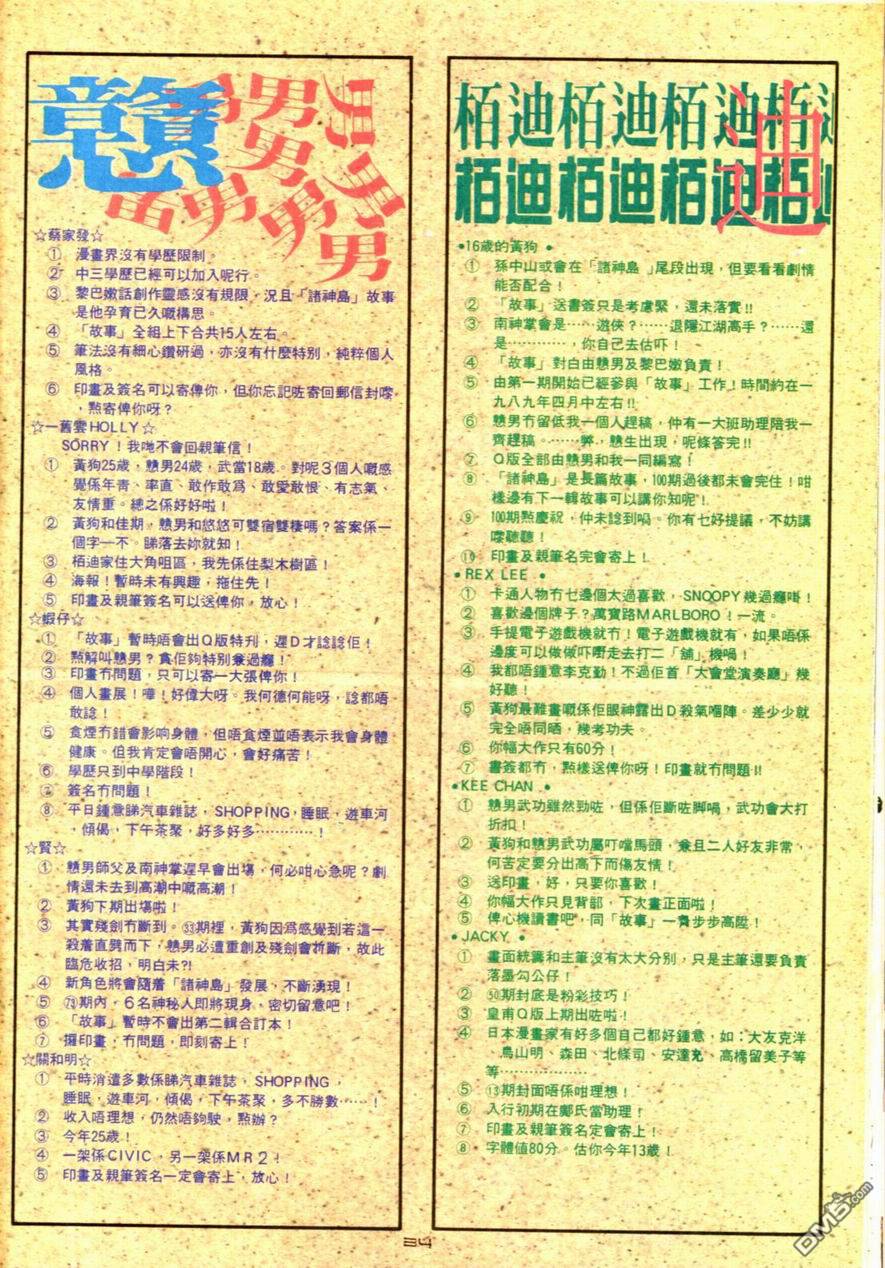 戇男男男男男男男男男
☆蔡家發☆
① 漫畫界沒有學歷限制。
② 中三學歷已經可以加入呢行。
③ 黎巴嫩話創作靈感沒有規限，況且「諸神島」故事
是他孕育已久嘅構思。
④ 「故事」全組上下合共15人左右。
⑤ 筆法沒有細心鑽研過，亦沒有什麼特別，純粹個人
風格。
⑥ 印畫及簽名可以寄俾你，但你忘記咗寄回郵信封嚟
，點寄俾你呀？
☆一舊雲HOLLY☆
SORRY！我哋不會回親筆信！
① 黃狗25歲，戇男24歲，武當18歲。對呢3個人嘅感
覺係年青、率直、敢作敢為、敢愛敢恨、有志氣、
友情重。總之係好好啦！
② 黃狗和佳期，戇男和悠悠可雙宿雙棲嗎？答案係一
個字—不。睇落去妳就知！
③ 栢迪家住大角咀區，我先係住梨木樹區！
④ 海報！暫時未有興趣，拖住先！
⑤ 印畫及親筆簽名可以送俾你，放心！
☆蝦仔☆
① 「故事」暫時唔會出Q版特刋，遲D才諗諗佢！
② 點解叫戇男？貪佢夠特別兼過癮！
③ 印畫冇問題，只可以寄一大張俾你！
④ 個人畫展！嘩！好偉大呀。我何德何能呀，諗都唔
敢諗！
⑤ 食煙冇錯會影响身體，但唔食煙並唔表示我會身體
健康。但我肯定會唔開心，會好痛苦！
⑥ 學歷只到中學階段！
⑦ 簽名冇問題！
⑧ 平日鍾意睇汽車雜誌，SHOPPING，睡眠，遊車河
，傾偈，下午茶聚，好多好多…………！
☆賢☆
① 戇男師父及南神掌遲早會出場，何必咁心急呢？劇
情還未去到高潮中嘅高潮！
② 黃狗下期出場啦！
③ 其實殘劍冇斷到。㉝期裡，黃狗因為感覺到若這一
殺着直劈而下，戇男必遭重創及殘劍會折斷，故此
臨危收招，明白未?!
④ 新角色將會隨着「諸神島」發展，不斷湧現！
⑤ 期內，6名神秘人即將現身，密切留意吧！
⑥ 「故事」暫時不會出第二輯合訂本！
⑦ 攞印畫，冇問題，即刻寄上！
☆關和明☆
① 平時消遣多數係睇汽車雜誌，SHOPPING，
睡眠，遊車河，傾偈，下午茶聚，多不勝數……！
② 收入唔理想，仍然唔夠駛，點辦？
③ 今年25歲！
④ 一架係CIVIC，另一架係MR2！
⑤ 印畫及親筆簽名一定會寄上，放心！
栢迪栢迪栢迪栢迪
栢迪栢迪栢迪栢迪
迪
•16歲的黃狗•
① 孫中山或會在「諸神島」尾段出現，但要看看劇情
能否配合！
② 「故事」送書簽只是考慮緊，還未落實!!
③ 南神掌會是……遊俠？……退隱江湖高手？……還
是…………，你自己去估吓！
④ 「故事」對白由戇男及黎巴嫩負責！
⑤ 由第一期開始已經參與「故事」工作！時間約在一
九八九年四月中左右!!
⑥ 戇男冇留低我一個人趕稿，仲有一大班助理陪我一
齊趕稿。……弊，戇生出現，呢條答完!!
⑦ Q版全部由戇男和我一同編寫！
⑧ 「諸神島」是長篇故事，100期過後都未會完住！咁
樣邊有下一輯故事可以講你知呢！
⑨ 100期點慶祝，仲未諗到喎。你有乜好提議，不妨講
嚟聽聽！
⑩ 印畫及親筆名完會寄上！
•REX LEE•
① 卡通人物冇乜邊個太過喜歡，SNOOPY幾過癮啩！
② 喜歡邊個牌子？萬寶路MARLBORO！一流。
③ 手提電子遊戲機就冇！電子遊戲機就有，如果唔係
邊度可以做做吓嘢走去打二「舖」機喎！
④ 我都唔鍾意李克勤！不過佢首「大會堂演奏廳」幾
好聽！
⑤ 黃狗最難畫嘅係佢眼神露出D殺氣嗰陣。差少少就
完全唔同晒，幾考功夫。
⑥ 你幅大作只有60分！
⑦ 書簽都冇，點樣送俾你呀！印畫就冇問題!!
•KEE CHAN•
① 戇男武功雖然勁咗，但係佢斷咗脚喎，武功會大打
折扣！
② 黃狗和戇男武功屬叮噹馬頭，兼且二人好友非常，
何苦定要分出高下而傷友情！
③ 送印畫，好，只要你喜歡！
④ 你幅大作只見背部，下次畫正面啦！
⑤ 俾心機讀書吧，同「故事」一齊步步高陞！
•JACKY•
① 畫面統籌和主筆沒有太大分別，只是主筆還要負責
落墨勾公仔！
② ㊿期封底是粉彩技巧！
③ 皇甫Q版上期出咗啦！
④ 日本漫畫家有好多個自己都好鍾意，如：大友克洋
、鳥山明、森田、北條司、安達充、高橋留美子等
等………………
⑤ ⑬期封面唔係咁理想！
⑥ 入行初期在鄺氏當助理！
⑦ 印畫及親筆簽名定會寄上！
⑧ 字體值80分。估你今年13歲！
34
DM5.com